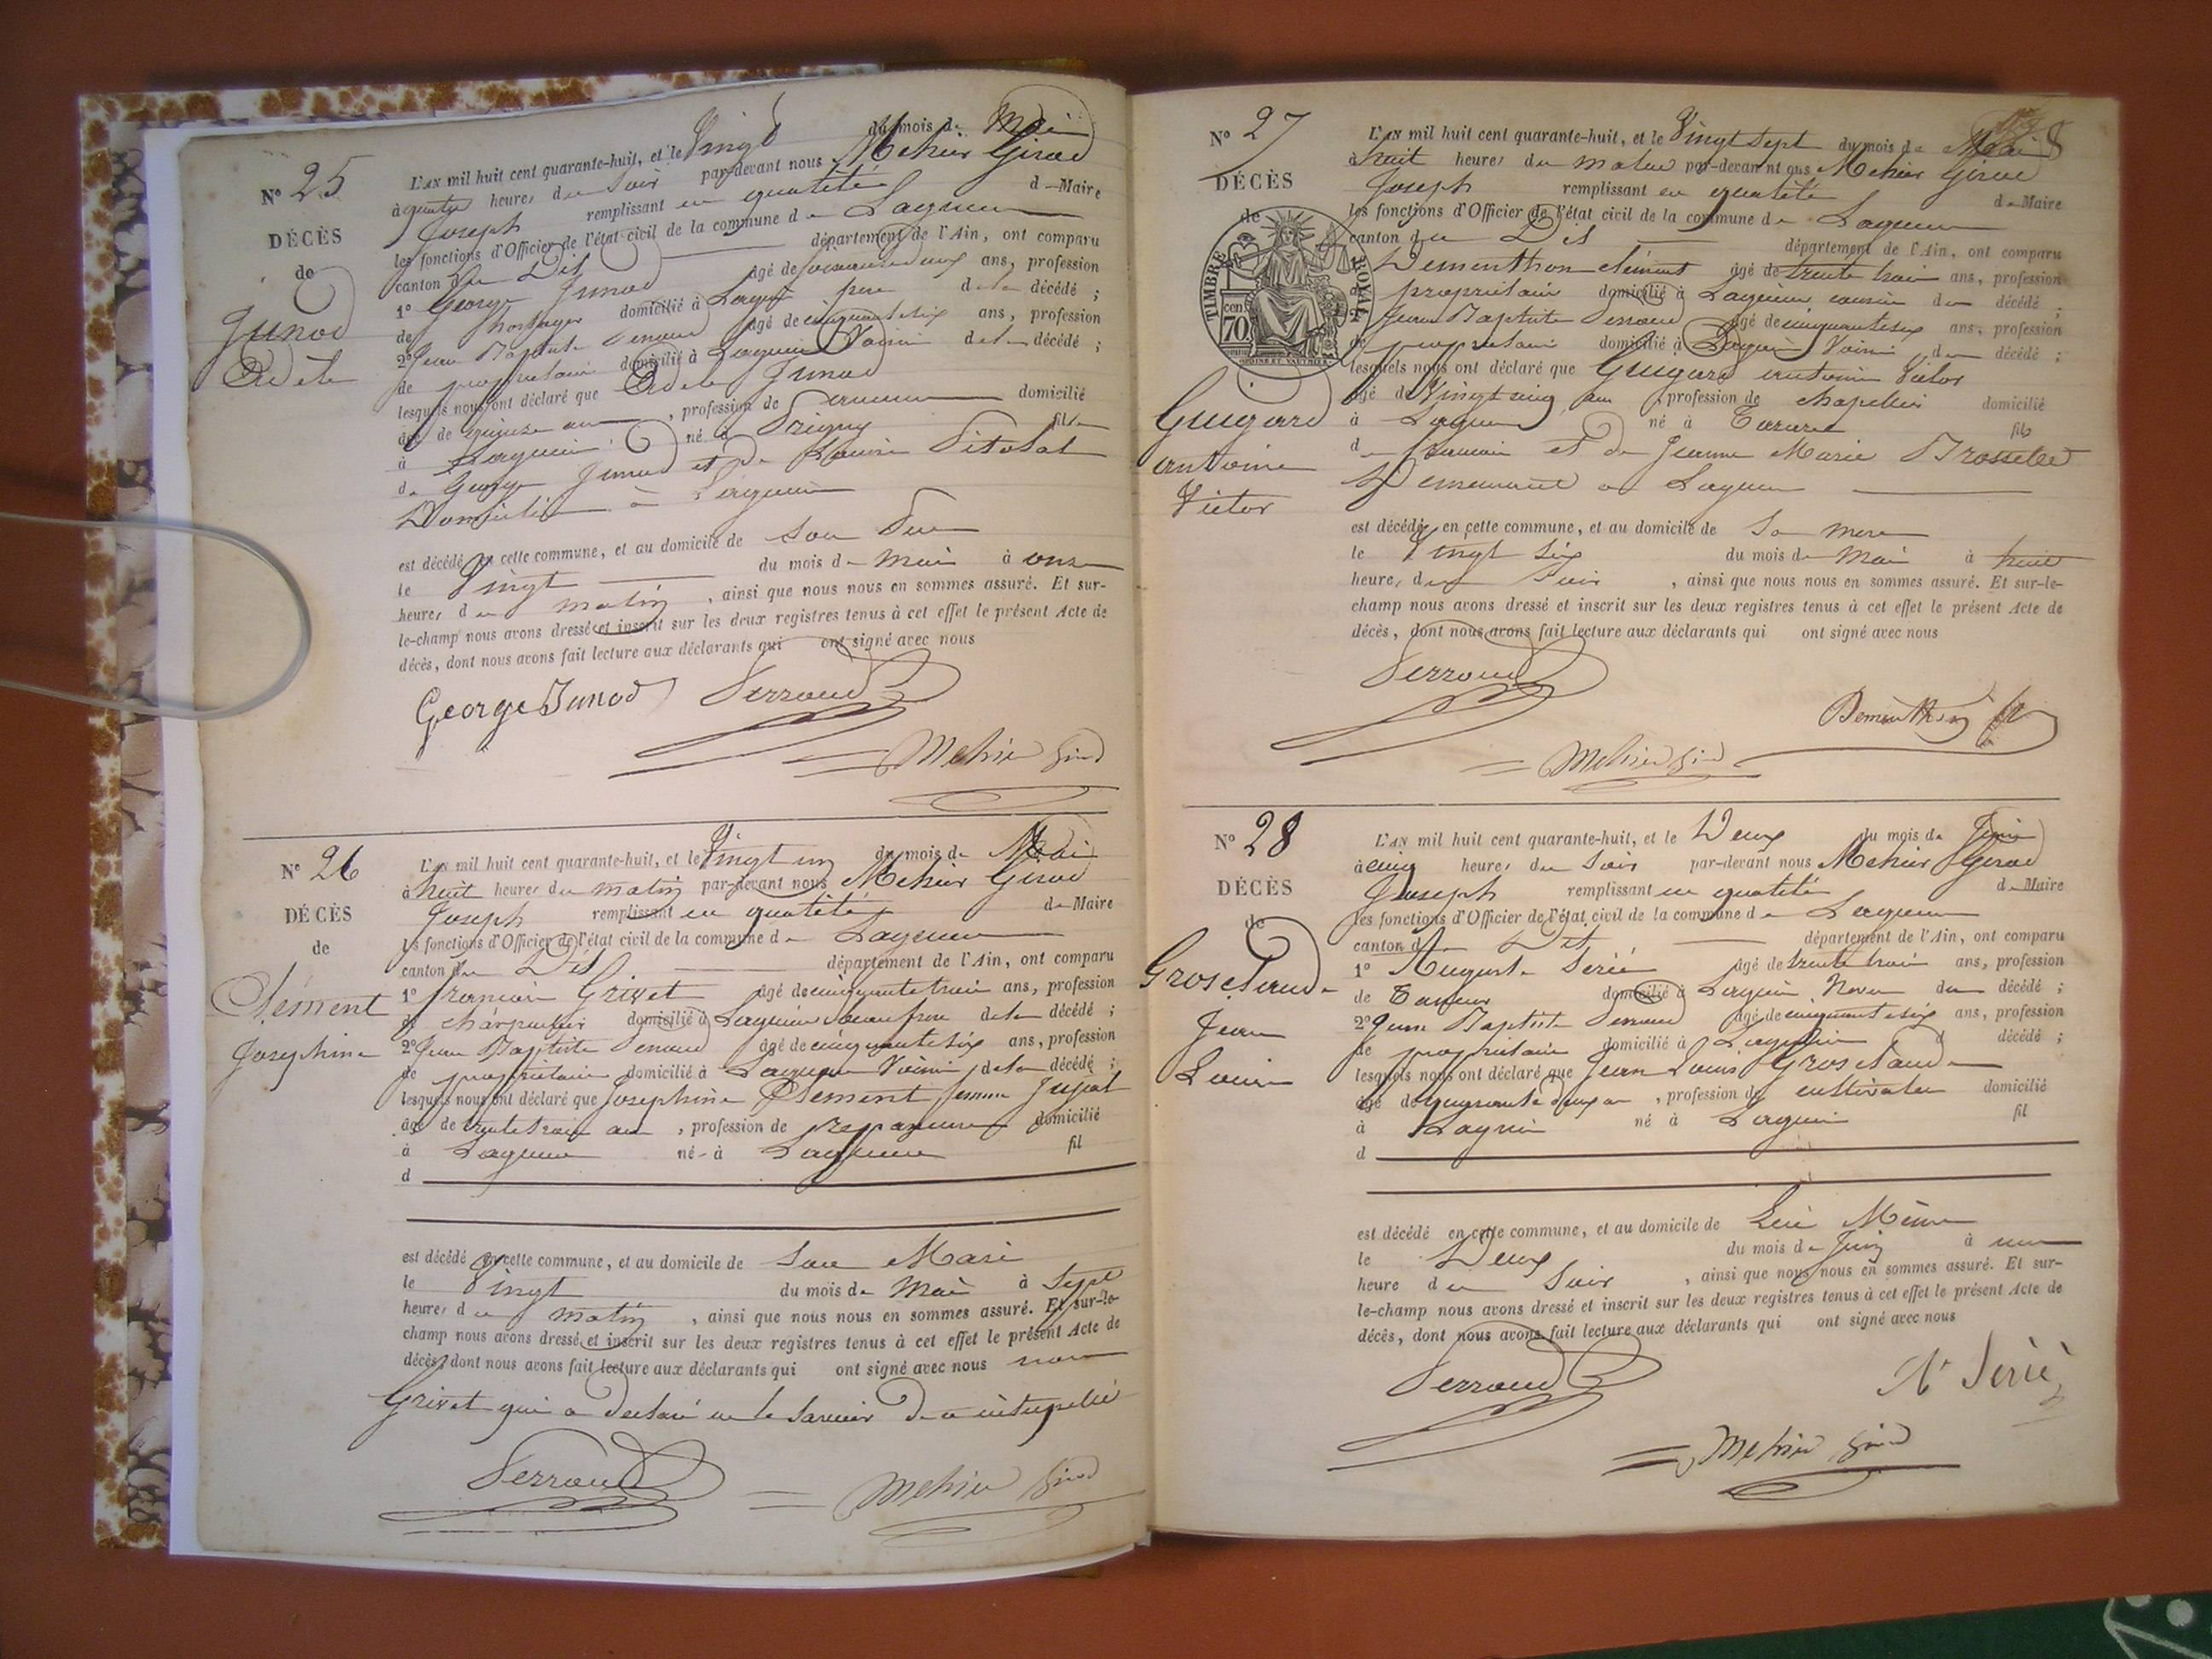 N° 25
DÉCÈS
de
Junod
Adèle
L'AN mil huit cent quarante-huit, et le Vingt du mois de Mai
à quatre heures du Soir par-devant nous Mehier Girod
Joseph remplissant en qualité de Maire
les fonctions d'Officier de l'état civil de la commune de Lagnieu
canton du Dit département de l'Ain, ont comparu
1° George Junod âgé de ans, profession
de horloger domicilié à père de la décédé ;
2° Jean Baptiste Perroud âgé de cinquante six ans, profession
de propriétaire domicilié à Lagnieu Voisin de la décédé ;
lesquels nous ont déclaré que Adele Junod
âgé de quinze ans, profession de aucune domicilié
à Lagnieu né à fille
de George Junod et de Louise
Domicilié à Lagnieu
est décédé en cette commune, et au domicile de son Père
le Vingt du mois de Mai à onze
heures du matin, ainsi que nous nous en sommes assuré. Et sur-
le-champ nous avons dressé et inscrit sur les deux registres tenus à cet effet le présent Acte de
décès, dont nous avons fait lecture aux déclarants qui ont signé avec nous
George Junod Perroud
Mehier Girod
N° 26
DÉCÈS
de
Clément
Josephine
L'AN mil huit cent quarante-huit, et le Vingt un du mois de Mai
à huit heures du matin par-devant nous Mehier Girod
Joseph remplissant en qualité de Maire
les fonctions d'Officier de l'état civil de la commune de Lagnieu
canton du Dit département de l'Ain, ont comparu
1° françois Grivet âgé de cinquante trois ans, profession
de charpentier domicilié à Lagnieu beau frere de la décédé ;
2° Jean Baptiste Perroud âgé de cinquante six ans, profession
de propriétaire domicilié à Lagnieu Voisin de la décédé ;
lesquels nous ont déclaré que Josephine Clement femme Jujat
âgé de trente trois ans, profession de repasseuse domicilié
à Lagnieu né à Lagnieu fil
d
est décédé en cette commune, et au domicile de Son Mari
le Vingt du mois de Mai à Sept
heures du matin, ainsi que nous nous en sommes assuré. Et sur-le-
champ nous avons dressé et inscrit sur les deux registres tenus à cet effet le présent Acte de
décès, dont nous avons fait lecture aux déclarants qui ont signé avec nous non
Grivet qui a déclaré ne le savoir de ce interpellé
Perroud Mehier Girod
N° 27
DÉCÈS
de
TIMBRE ROYAL
70 cen
Guigard
antoine
Victor
L'AN mil huit cent quarante-huit, et le Vingt Sept du mois de Mai
à huit heures du matin par-devant nous Mehier Girod
Joseph remplissant en qualité de Maire
les fonctions d'Officier de l'état civil de la commune de Lagnieu
canton du Dit département de l'Ain, ont comparu
Dementhon clément âgé de trente trois ans, profession
de propriétaire domicilié à Lagnieu cousin du décédé ;
Jean Baptiste Perroud âgé de cinquante six ans, profession
de propriétaire domicilié à Lagnieu Voisin du décédé ;
lesquels nous ont déclaré que Guigard antoine Victor
âgé de Vingt cinq ans, profession de chapellier domicilié
à Lagnieu né à Tarare fils
de et de Jeanne Marie
Demeurant a Lagnieu
est décédé en cette commune, et au domicile de Sa mere
le Vingt Six du mois de Mai à huit
heures du Soir, ainsi que nous nous en sommes assuré. Et sur-le-
champ nous avons dressé et inscrit sur les deux registres tenus à cet effet le présent Acte de
décès, dont nous avons fait lecture aux déclarants qui ont signé avec nous
Perroud
Dementhon
Mehier Girod
N° 28
DÉCÈS
de
Grosclaude
Jean
Louis
L'AN mil huit cent quarante-huit, et le Deux du mois de Juin
à cinq heures du Soir par-devant nous Mehier Girod
Joseph remplissant en qualité de Maire
les fonctions d'Officier de l'état civil de la commune de Lagnieu
canton du Dit département de l'Ain, ont comparu
1° Auguste Serié âgé de trente trois ans, profession
de Tanneur domicilié à Lagnieu Neveu du décédé ;
2° Jean Baptiste Perroud âgé de cinquante six ans, profession
de propriétaire domicilié à Lagnieu d décédé ;
lesquels nous ont déclaré que Jean Louis Grosclaude
âgé de cinquante deux an, profession de cultivateur domicilié
à Lagnieu né à Lagnieu fil
d
est décédé en cette commune, et au domicile de Lui Même
le Deux du mois de Juin à une
heure du Soir, ainsi que nous nous en sommes assuré. Et sur-
le-champ nous avons dressé et inscrit sur les deux registres tenus à cet effet le présent Acte de
décès, dont nous avons fait lecture aux déclarants qui ont signé avec nous
Perroud
Ate Serié
Mehier Girod